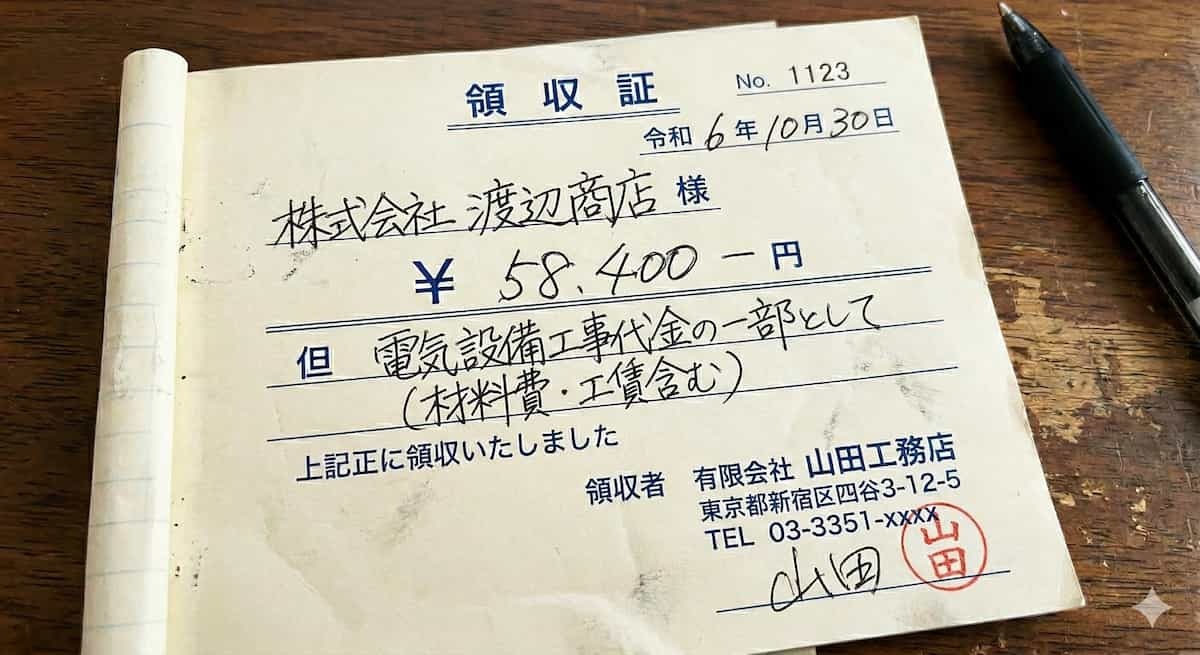 領収証
No. 1123
令和 6年10月30日
株式会社 渡辺商店 様
¥ 58.400 ー 円
但 電気設備工事代金の一部として
(材料費・工賃含む)
上記正に領収いたしました
領収者 有限会社 山田工務店
東京都新宿区四谷3-12-5
TEL 03-3351-xxxx
山田
山田